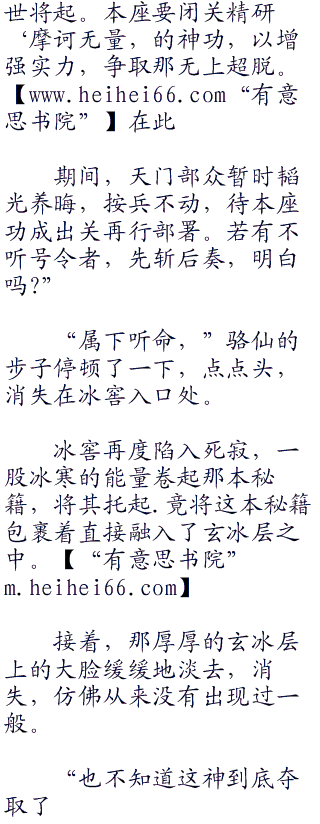 世将起。本座要闭关精研
‘摩诃无量，的神功，以增
强实力，争取那无上超脱。
【www.heihei66.com“有意
思书院”】在此
期间，天门部众暂时韬
光养晦，按兵不动，待本座
功成出关再行部署。若有不
听号令者，先斩后奏，明白
吗?”
“属下听命，”骆仙的
步子停顿了一下，点点头，
消失在冰窖入口处。
冰窖再度陷入死寂，一
股冰寒的能量卷起那本秘
籍，将其托起.竟将这本秘籍
包裹着直接融入了玄冰层之
中。【“有意思书院”
m.heihei66.com】
接着，那厚厚的玄冰层
上的大脸缓缓地淡去，消
失，仿佛从来没有出现过一
般。
“也不知道这神到底夺
取了